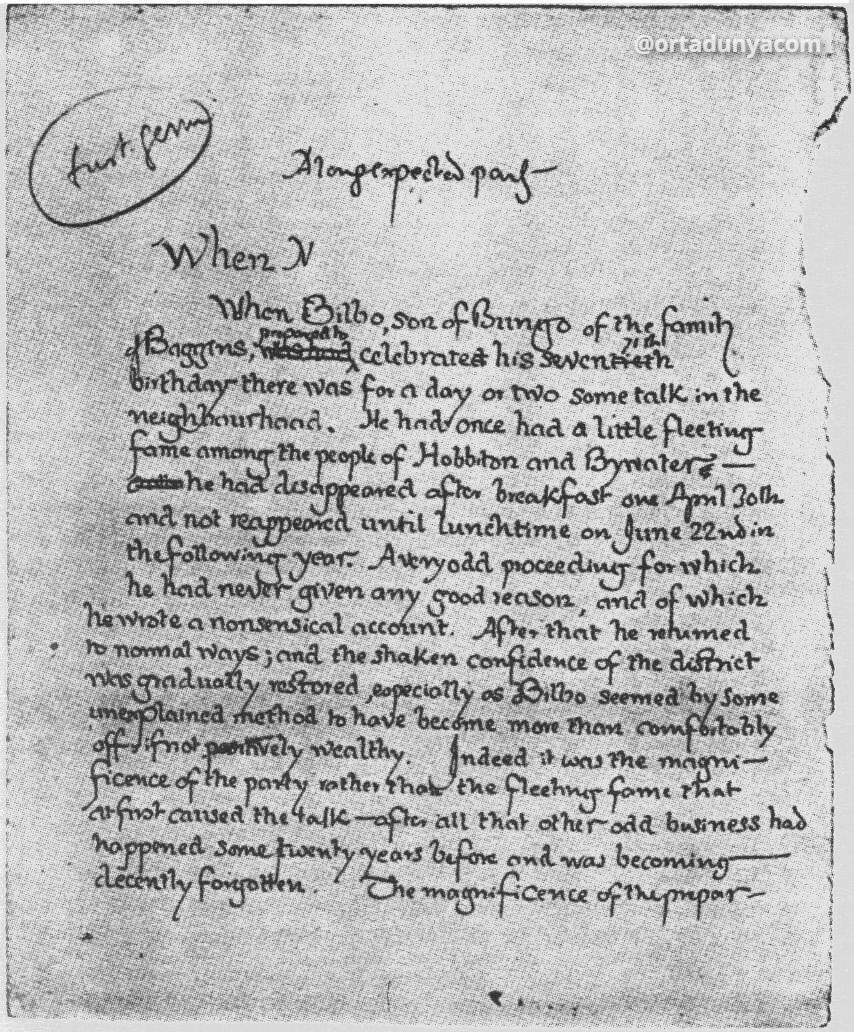 @ortadunyacom
first germ
A long expected party
When
When Bilbo, son of Bungo of the family
prepared to 71th
of Baggins, was had celebrated his seventieth
birthday there was for a day or two some talk in the
neighbourhood. He had once had a little fleeting
fame among the people of Hobbiton and Bywater —
he had disappeared after breakfast one April 30th
and not reappeared until lunchtime on June 22nd in
the following year. A very odd proceeding for which
he had never given any good reason, and of which
he wrote a nonsensical account. After that he returned
to normal ways; and the shaken confidence of the district
was gradually restored, especially as Bilbo seemed by some
unexplained method to have become more than comfortably
off, if not positively wealthy. Indeed it was the magni-
ficence of the party rather than the fleeting fame that
at first caused the talk — after all that other odd business had
happened some twenty years before and was becoming
decently forgotten. The magnificence of the prepar-